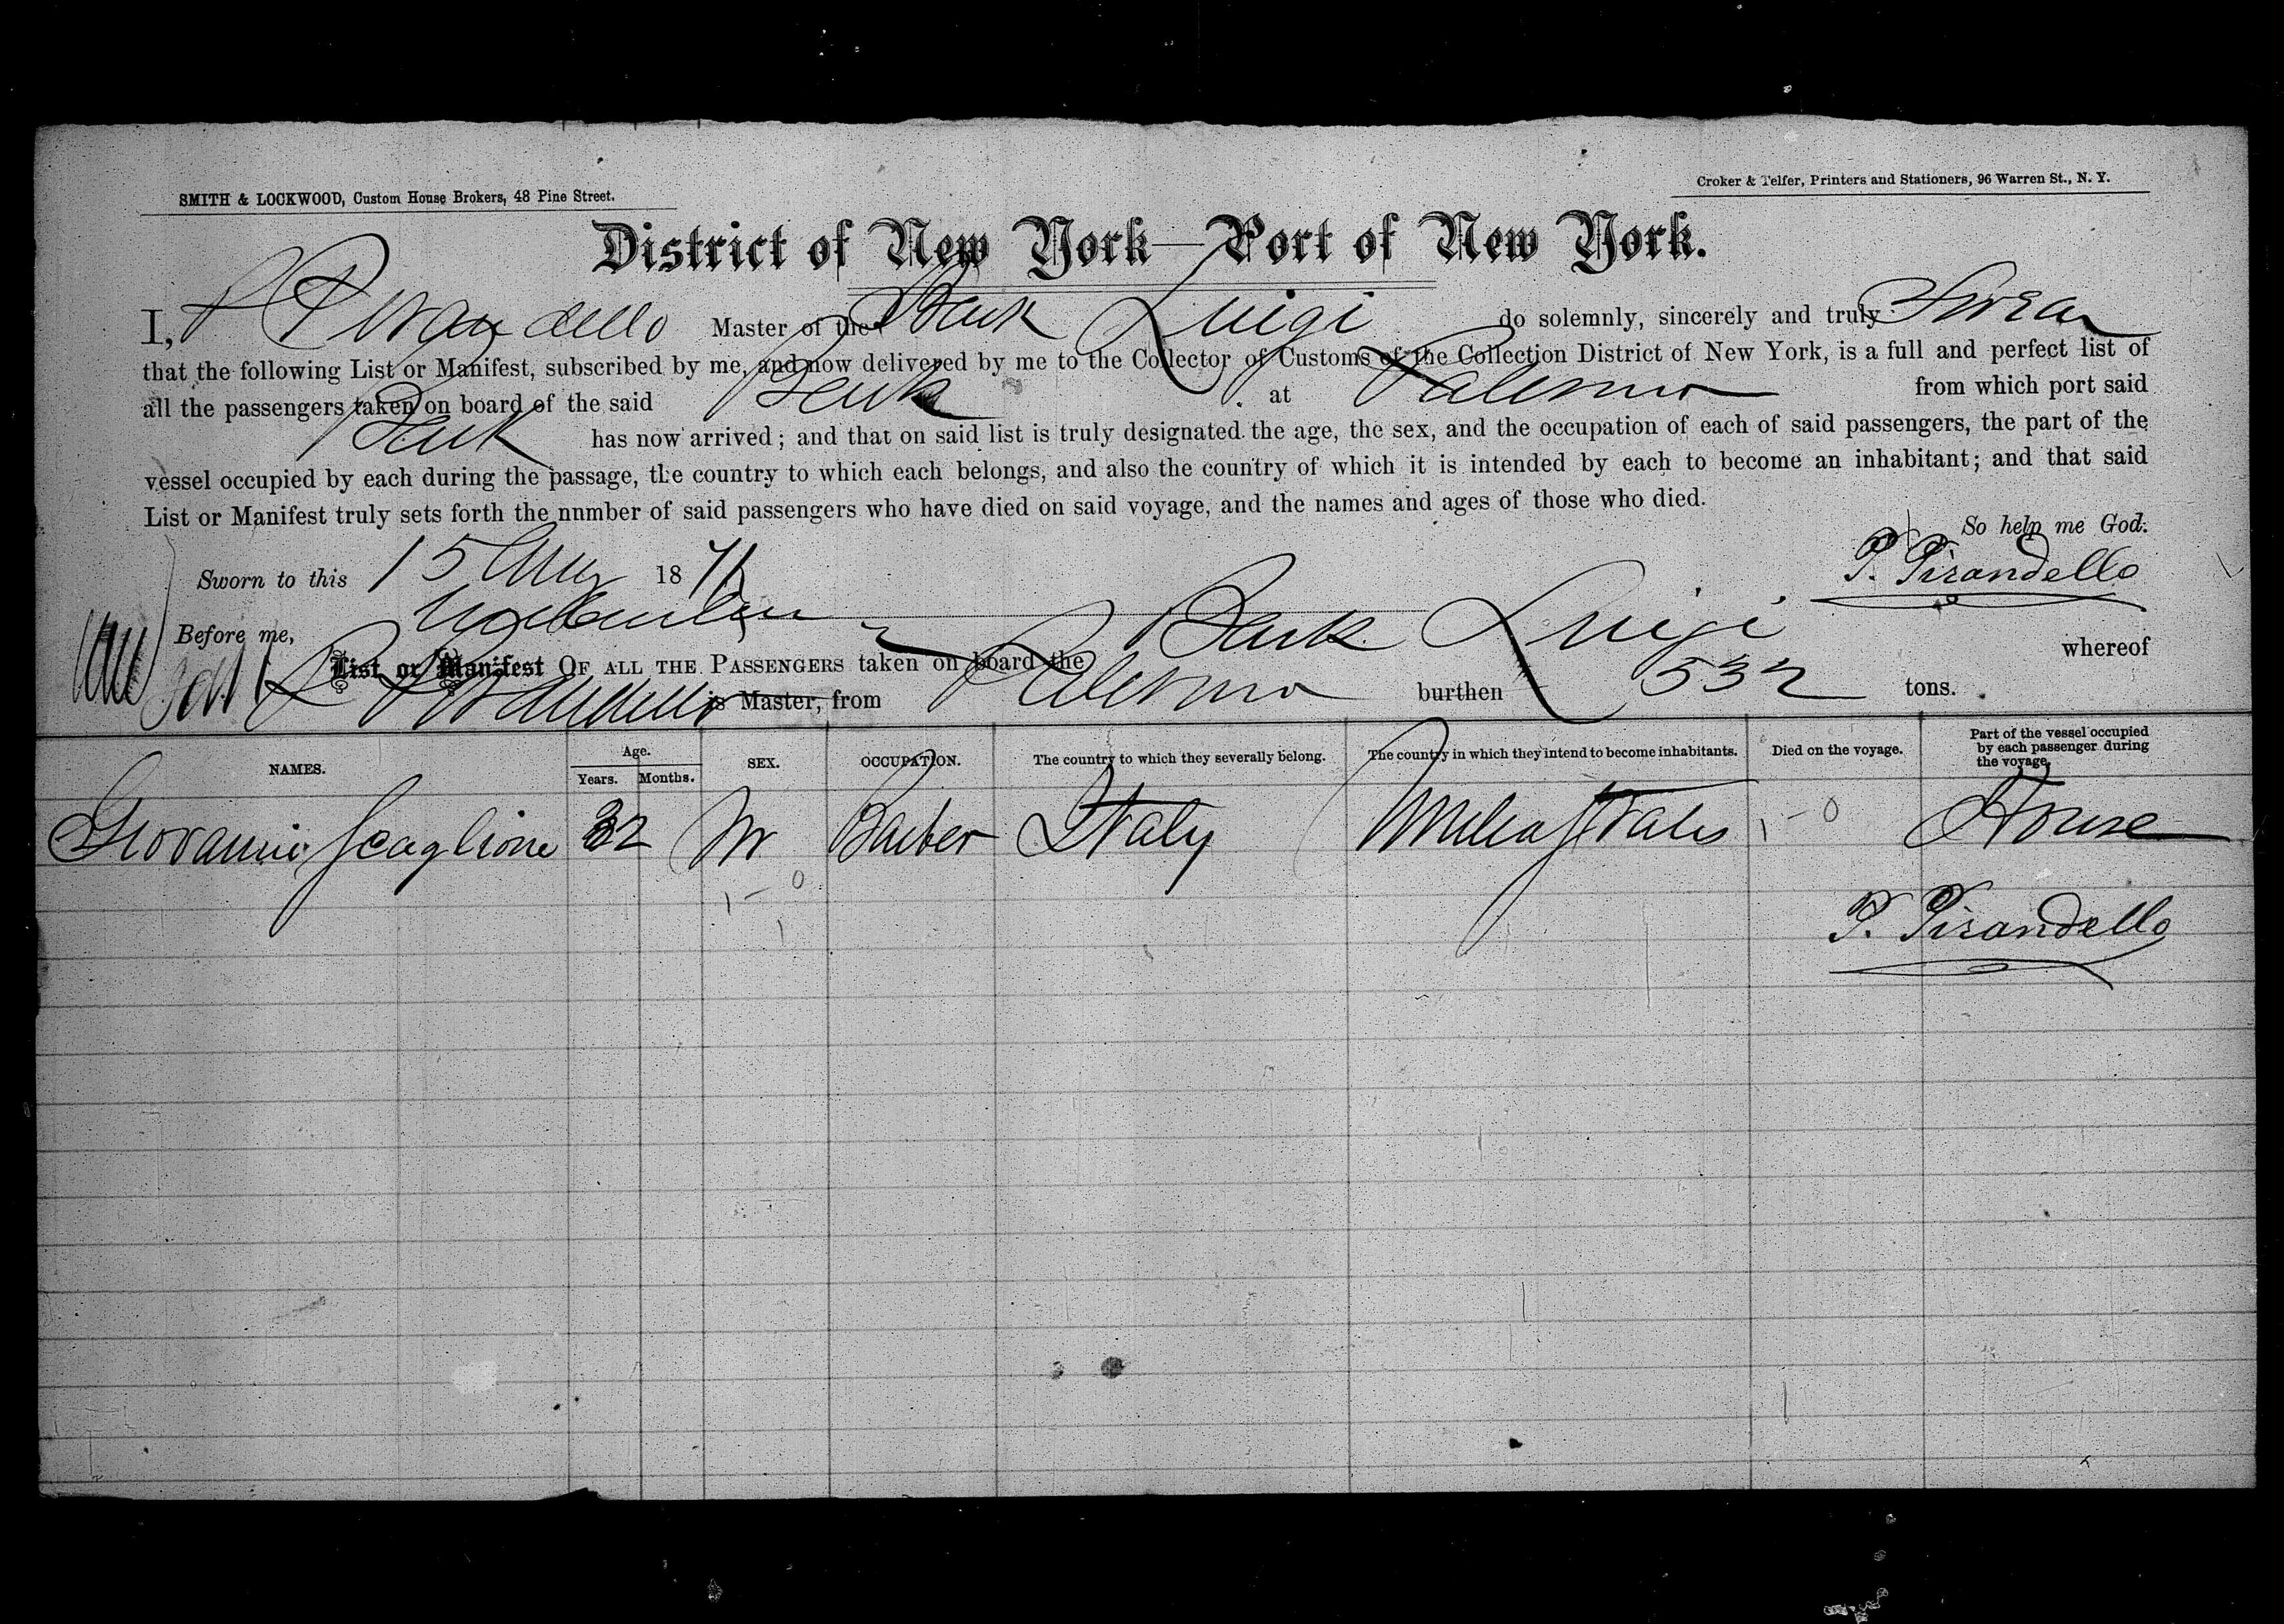 SMITH & LOCKWOOD, Custom House Brokers, 48 Pine Street.
Croker & Telfer, Printers and Stationers, 96 Warren St., N. Y.
District of New York—Port of New York.
I, P Pirandello Master of the Bark Luigi do solemnly, sincerely and truly Swear
that the following List or Manifest, subscribed by me, and now delivered by me to the Collector of Customs of the Collection District of New York, is a full and perfect list of
all the passengers taken on board of the said Bark at Palermo from which port said
Bark has now arrived; and that on said list is truly designated the age, the sex, and the occupation of each of said passengers, the part of the
vessel occupied by each during the passage, the country to which each belongs, and also the country of which it is intended by each to become an inhabitant; and that said
List or Manifest truly sets forth the nnmber of said passengers who have died on said voyage, and the names and ages of those who died.
So help me God.
P. Pirandello
Sworn to this 15 1871
Before me,
List or Manifest OF ALL THE PASSENGERS taken on board the Bark Luigi whereof
P Pirandello is Master, from Palermo burthen 532 tons.
NAMES. Age. Years. Months. SEX. OCCUPATION. The country to which they severally belong. The country in which they intend to become inhabitants. Died on the voyage. Part of the vessel occupied by each passenger during the voyage.
Giovanni Scaglione 32 M Barber Italy United States 1-0 House
1-0
P. Pirandello